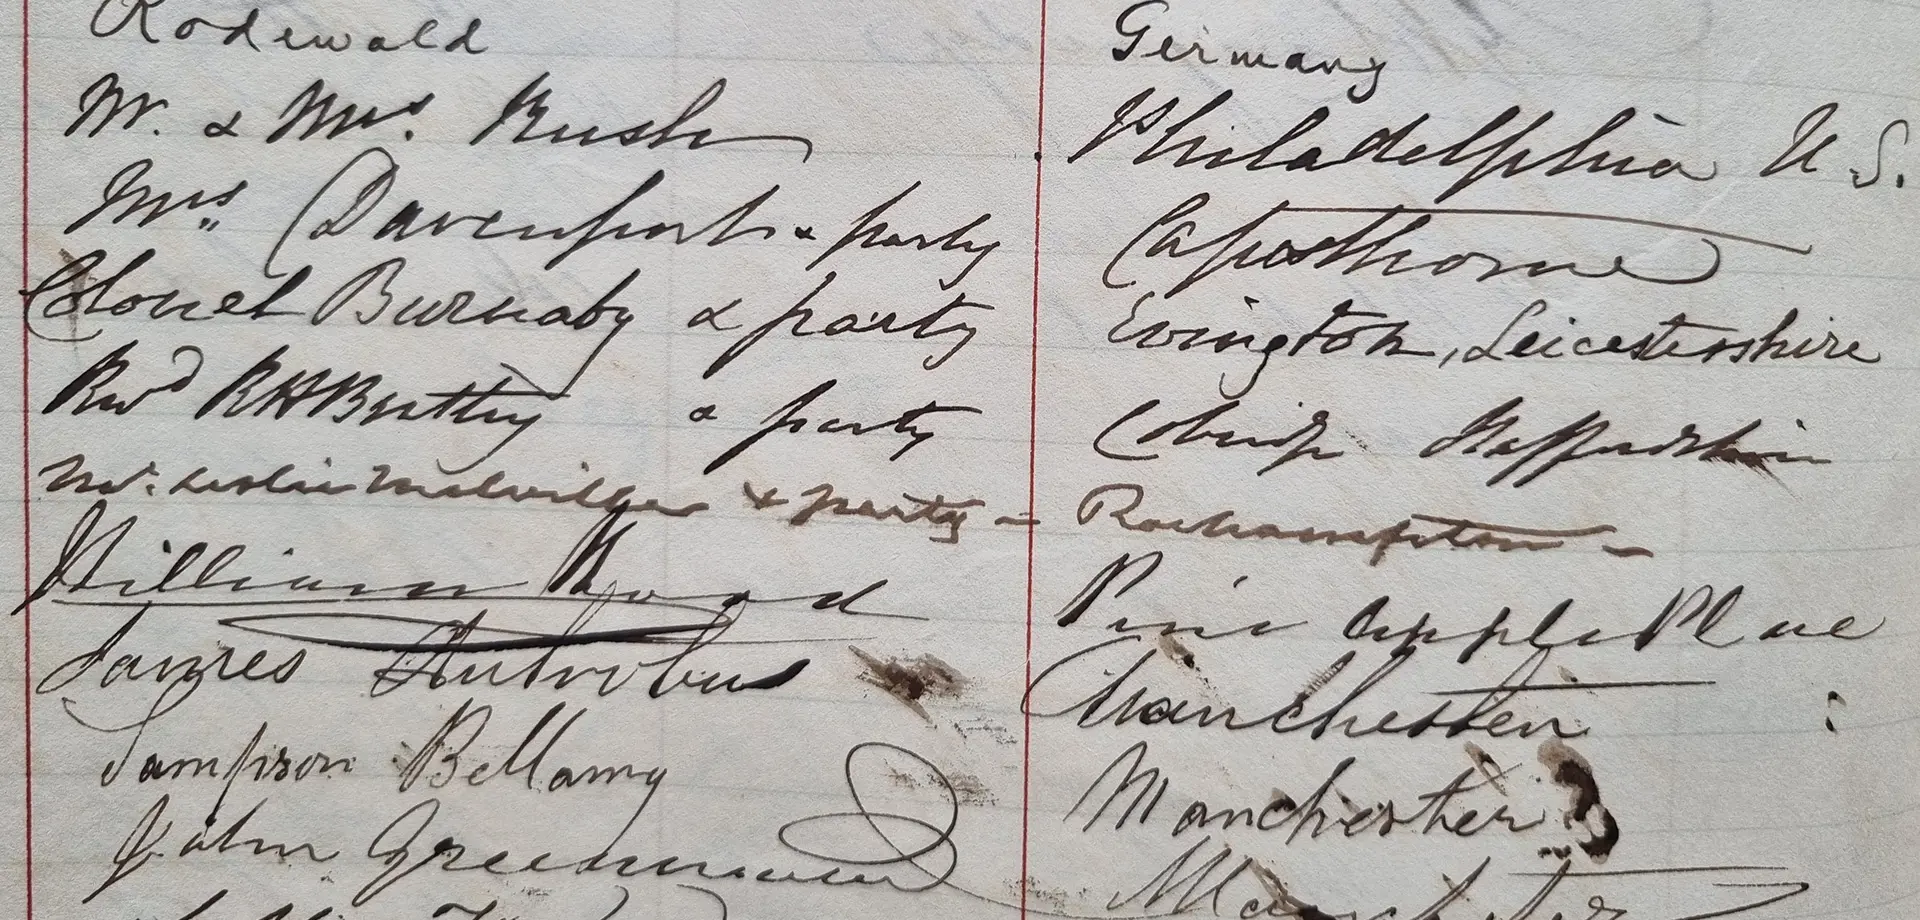 Rodewald Germany
Mr. & Mrs. Rush Philadelphia U.S.
Mrs. Davenport & party Capesthorne
Colonel Burnaby & party Evington, Leicestershire
Revd R H & party Staffordshire
Mr. Leslie Melville & party – Roehampton –
William Wood Pine Apple Place
James Antrobus Manchester :
Sampson Bellamy Manchester
John Greenwood Manchester